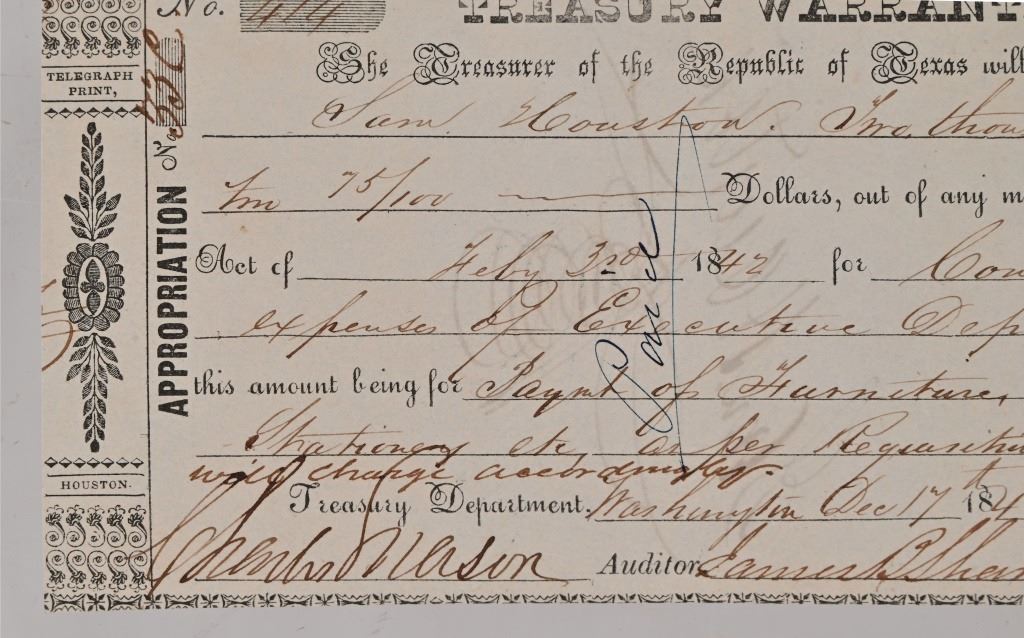 No. 414 TREASURY WARRANT
TELEGRAPH
PRINT,
The Treasurer of the Republic of Texas will
Sam Houston. Two thou
ten 75/100 Dollars, out of any m
Act of Feby 3rd 1842 for Con
expenses of Executive Dep
APPROPRIATION No.
Paid
this amount being for Paymt of Furniture,
Stationery etc as per Requisition
will charge accordingly
HOUSTON.
Treasury Department, Washington Dec 17th 184
Charles Mason Auditor James B Shaw